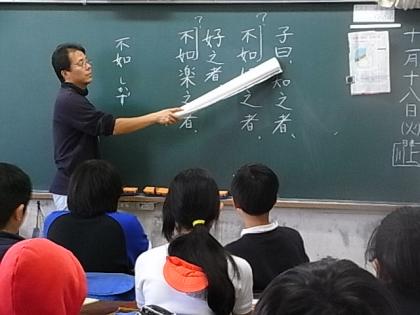 十月十八日(火)
子曰 知之者、
?
不如 之者、
好之者
?
不如楽之者、
不如 しかず